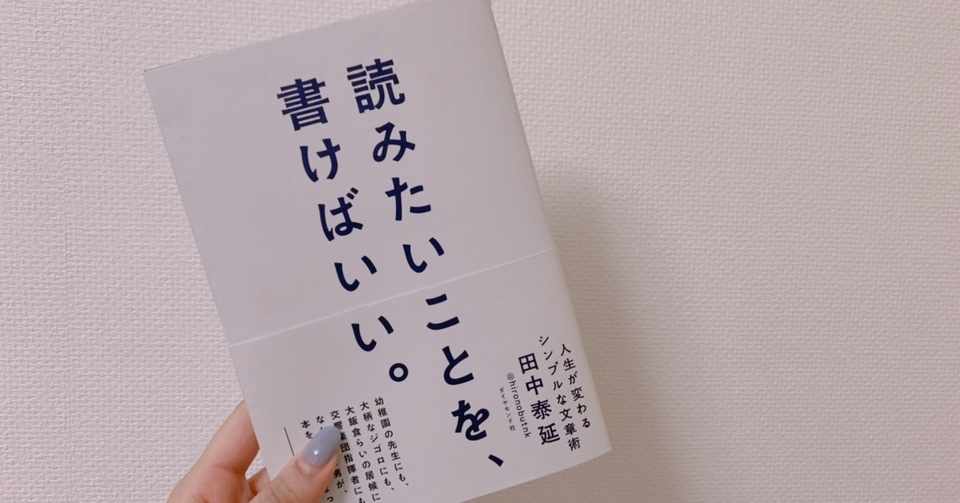 読みたいことを、
書けばいい。
人生が変わる
シンプルな文章術
田中泰延
@hironobutnk
ダイヤモンド社
幼稚園の先生にも、
大柄なジゴロにも、
大飯食らいの居候に
大
交響楽団指揮者にも
な
男が、
本を